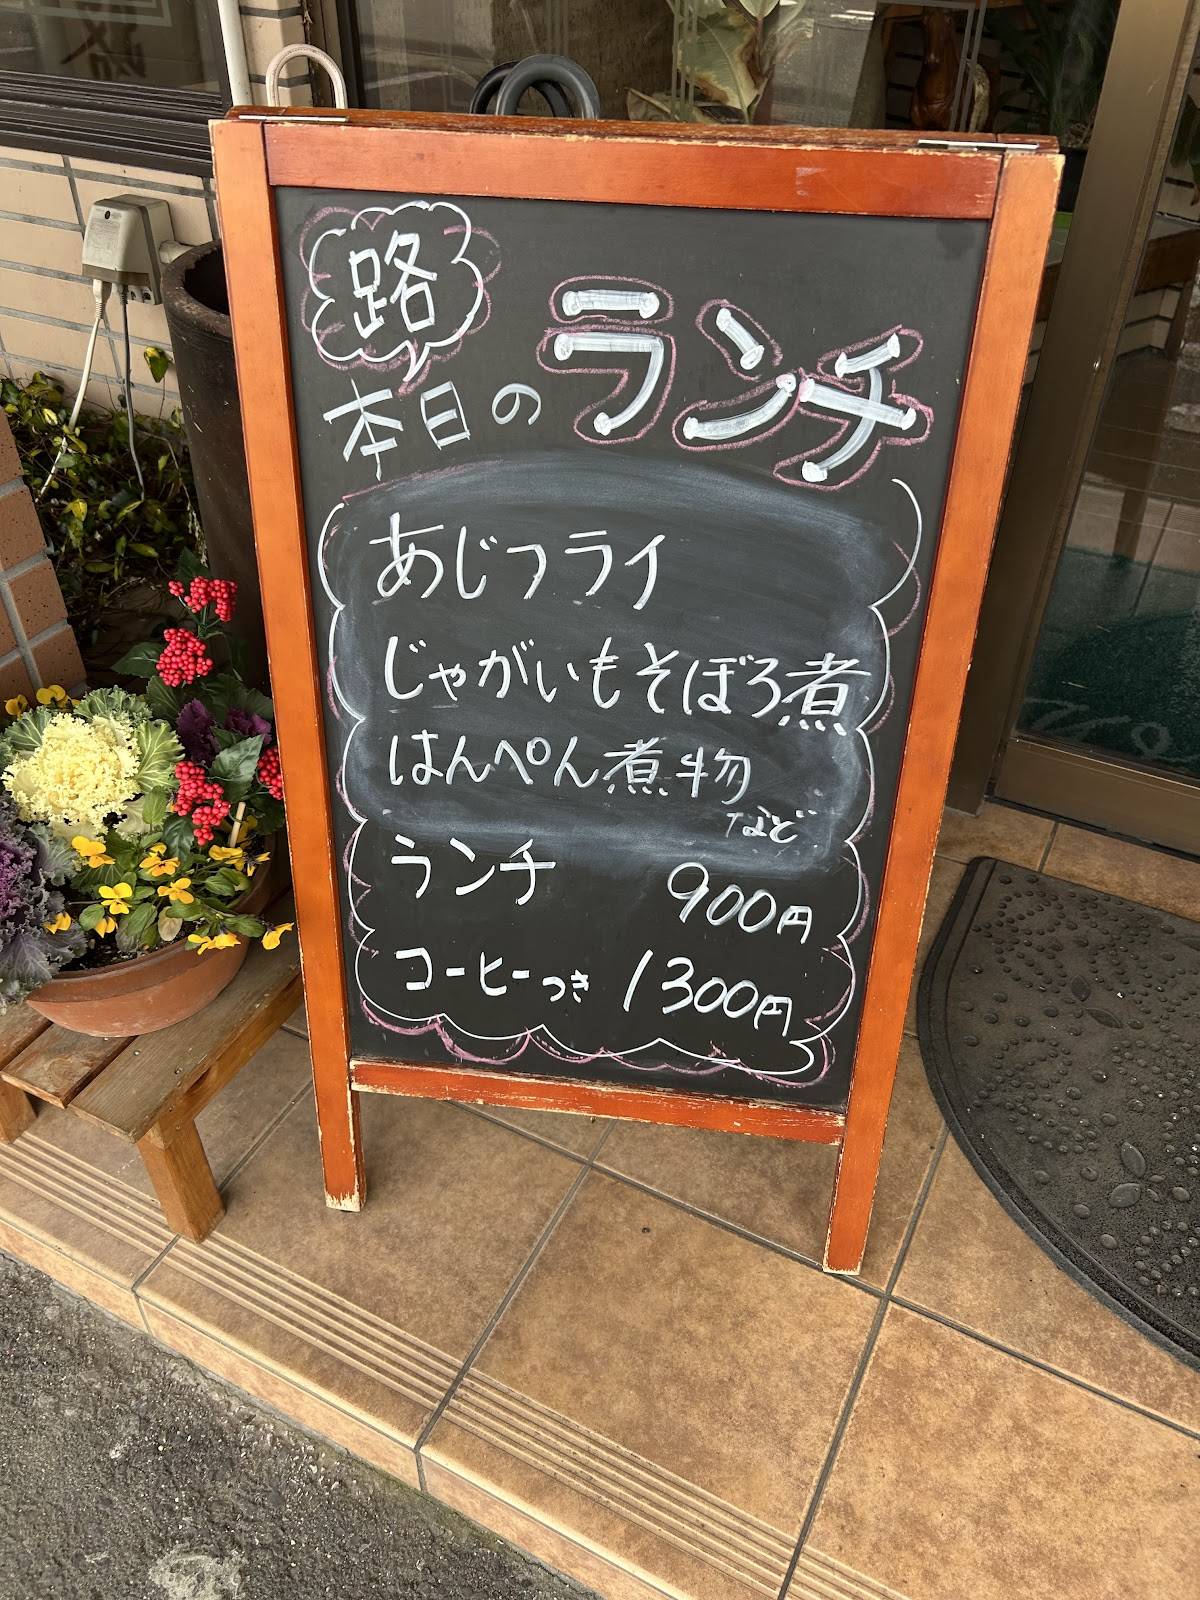 路
本日の ランチ
あじフライ
じゃがいもそぼろ煮
はんぺん煮物
など
ランチ 900円
コーヒーつき 1300円